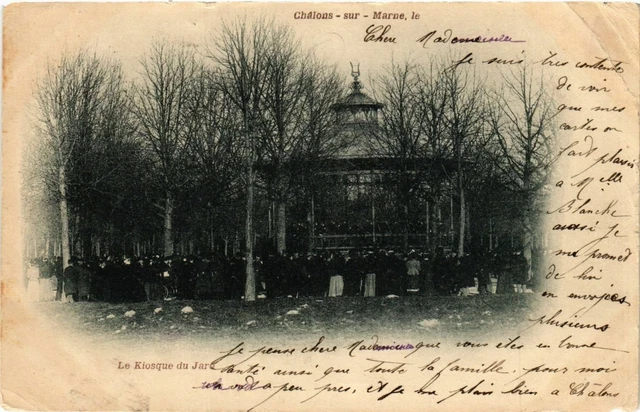 Châlons - sur - Marne, le
Chere Mademoiselle
je suis tres contente
de voir
que mes
cartes on
fait plaisir
a Melle
Blanche
aussi je
me promet
de lui
en envoyés
plusieurs
Le Kiosque du Jard
je pense chere Mademoiselle que vous êtes en bonne
santé ainsi que toute la famille. pour moi
a peu pres, et je me plais bien a Châlons